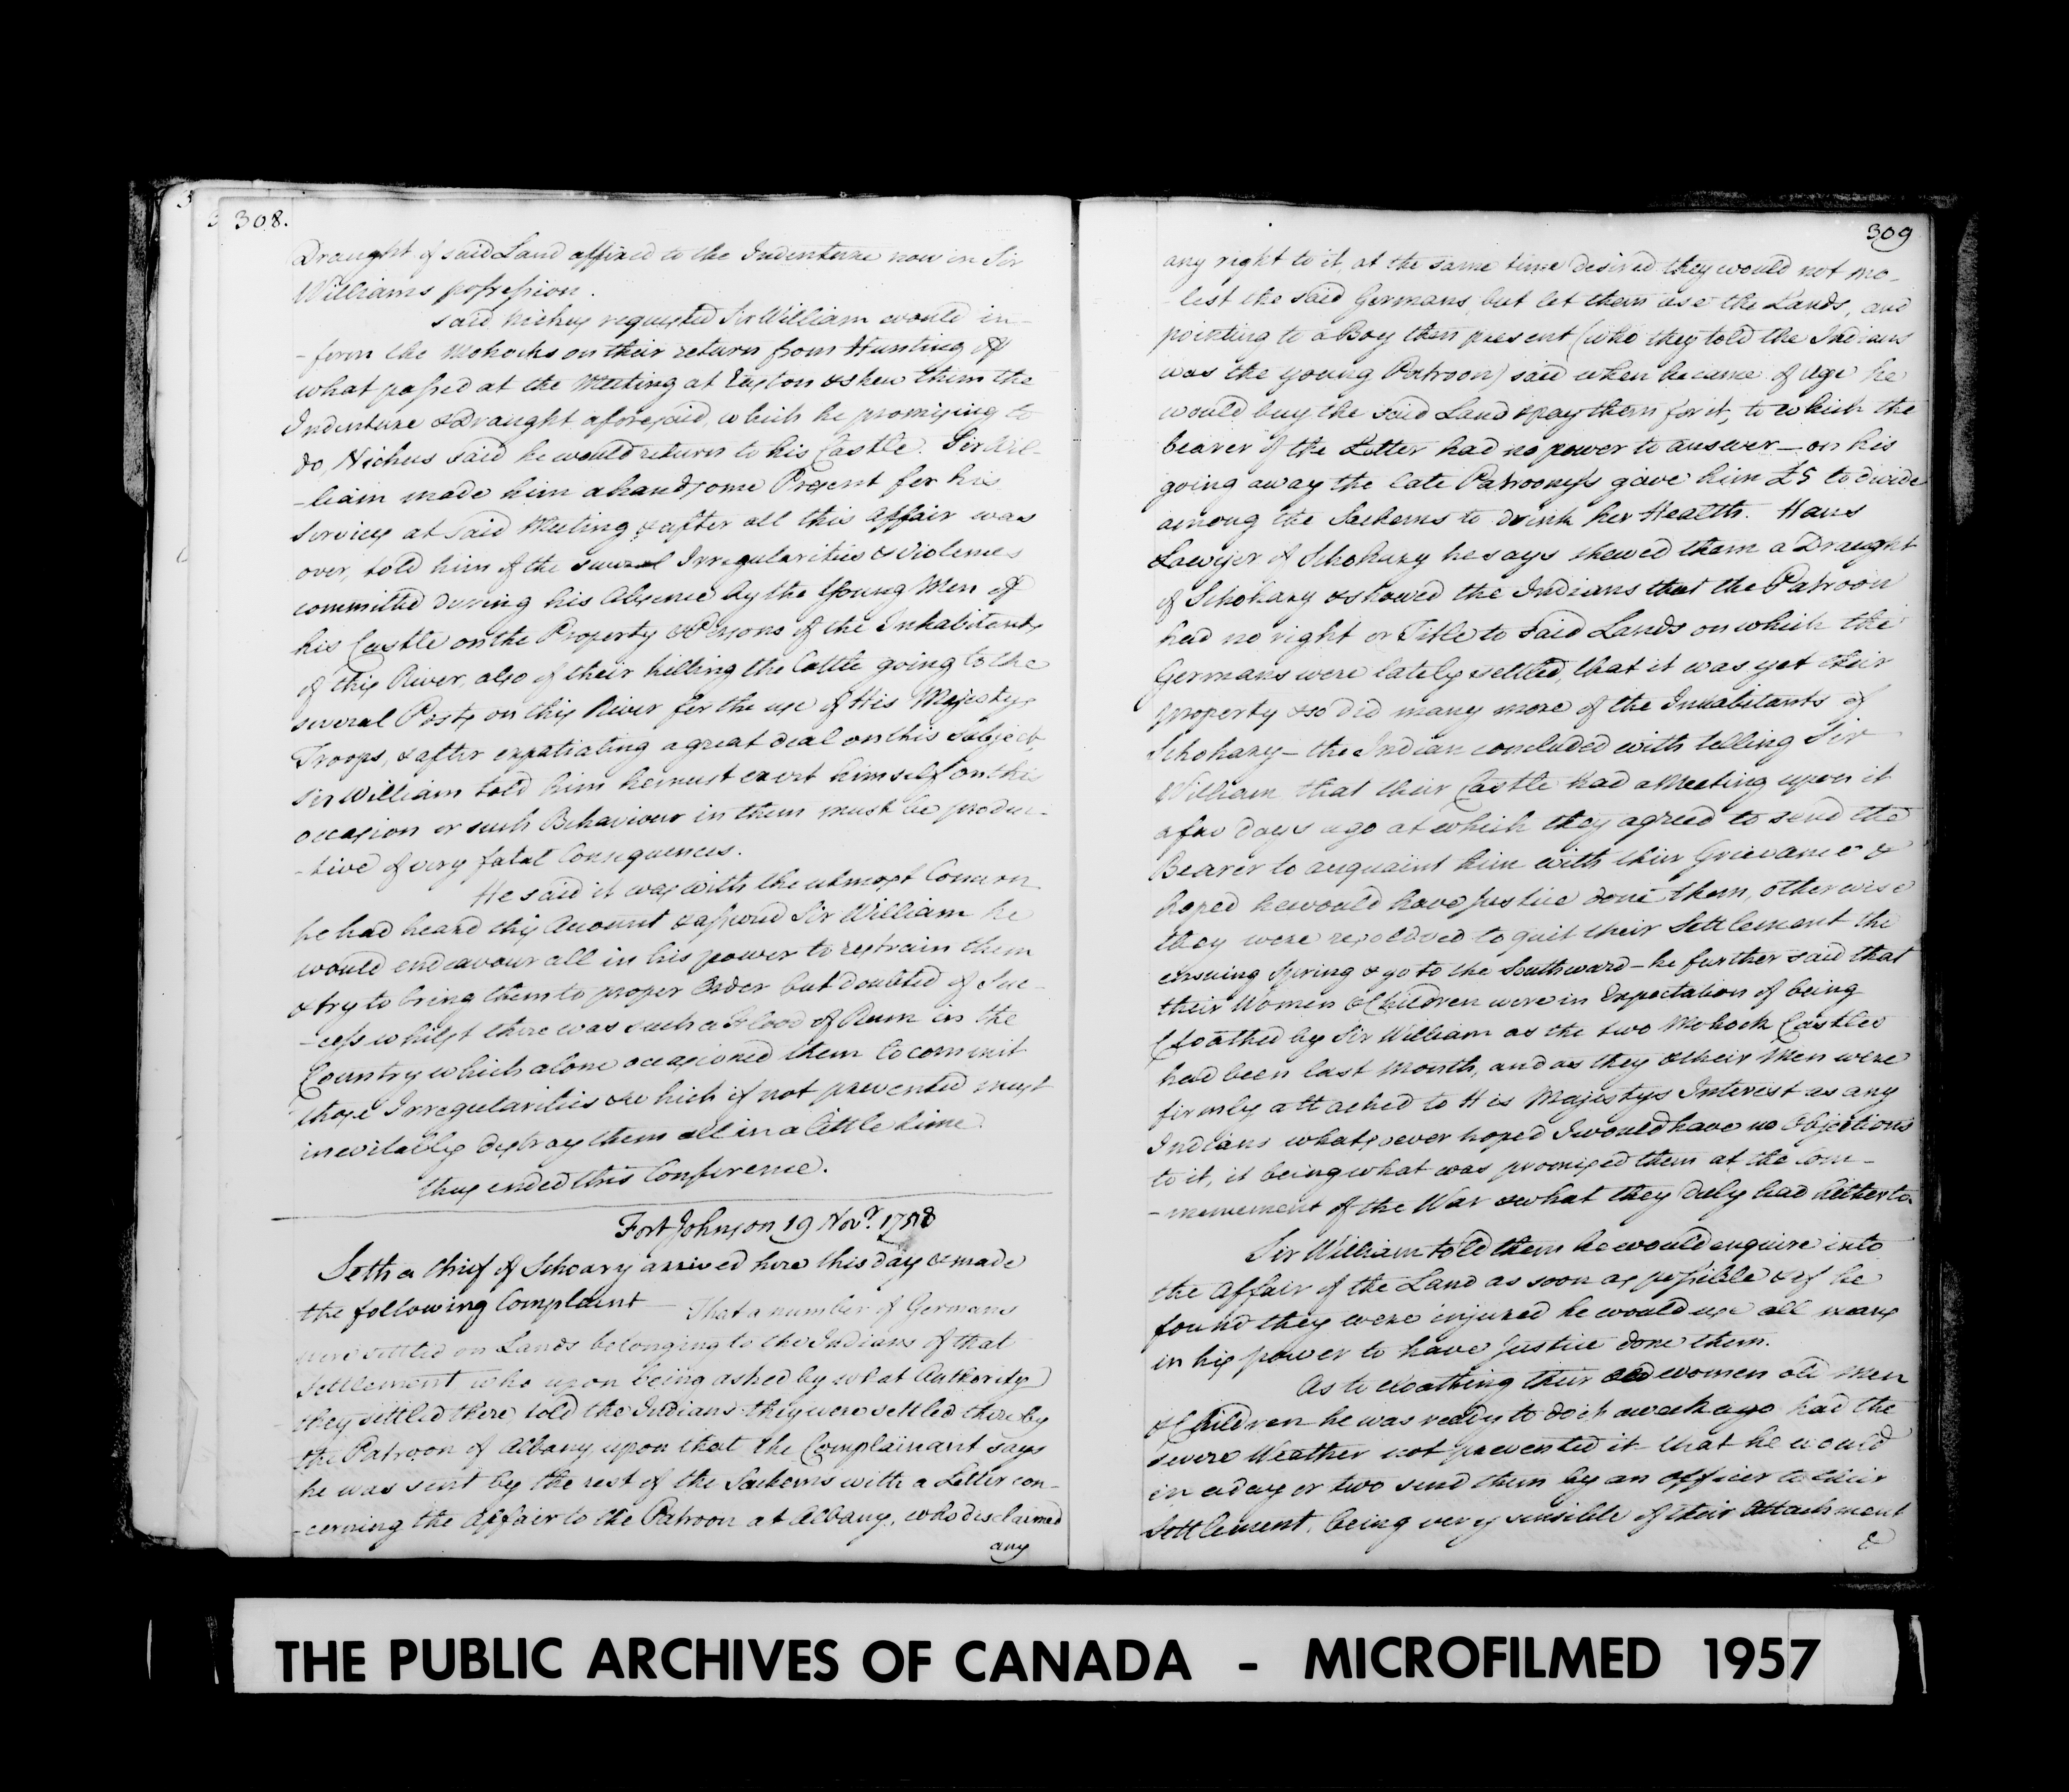 308.
Draught of said Land affixed to the Indenture now in Sir
Williams possession.
said Nickus requested Sir William would in-
-form the Mohocks on their return from Hunting of
what passed at the Meeting at Easton & shew them the
Indenture & Draught aforesaid, which he promising to
do, Nickus said he would return to his Castle. Sir Wil-
-liam made him a handsome Present for his
Services at said Meeting & after all this Affair was
over, told him of the several Irregularities & Violences
committed during his Absence by the Young Men of
his Castle on the Property & Persons of the Inhabitants
of this River, also of their killing the Cattle going to the
several Posts on this River for the use of His Majestys
Troops, & after expatiating a great deal on this Subject,
Sir William told him he must exert himself on this
occasion or such Behaviour in them must be produc-
-tive of very fatal Consequences.
He said it was with the utmost Concern
he had heard this Account & assured Sir William he
would endeavour all in his power to restrain them
& try to bring them to proper Order but doubted of Suc-
-cess whilst there was such a Flood of Rum in the
Country which alone occasioned them to commit
those Irregularities & which if not prevented must
inevitably destroy them all in a little time.
thus ended this Conference.
Fort Johnson 19 Novr. 1758
Seth a Chief of Schoary arrived here this day & made
the following Complaint — That a number of Germans
were settled on Lands belonging to the Indians of that
Settlement who upon being asked by what Authority
they settled there, told the Indians they were settled there by
the Patroon of Albany upon that the Complainant says
he was sent by the rest of the Sachems with a Letter con-
-cerning the Affair to the Patroon at Albany, who disclaimed
any
309
any right to it, at the same time desired they would not mo-
-lest the said Germans, but let them use the Lands, and
pointing to a Boy then present (who they told the Indians
was the young Patroon) said when he came of Age he
would buy the said Land & pay them for it, to which the
bearer of the Letter had no power to answer — on his
going away the late Patroons's gave him £5 to divide
among the Sachems to drink her Health. Hans
Lawyer of Schohary he says shewed them a Draught
of Schohary & showed the Indians that the Patroon
had no right or Title to said Lands on which the
Germans were lately settled, that it was yet their
property & so did many more of the Inhabitants of
Schohary — the Indian concluded with telling Sir
William that their Castle had a Meeting upon it
a few days ago at which they agreed to send the
Bearer to acquaint him with their Grievance &
hoped he would have Justice done them, otherwise
they were resolved to quit their Settlement the
ensuing Spring & go to the Southward — he further said that
their Women & Children were in Expectation of being
Cloathed by Sir William as the two Mohock Castles
had been last Month, and as they & their Men were
firmly attached to His Majestys Interest as any
Indians whatsoever hoped I would have no Objections
to it, it being what was promised them at the Com-
-mencement of the War & what they duly had hitherto.
Sir William told them he would enquire into
the Affair of the Land as soon as possible & if he
found they were injured he would use all means
in his power to have Justice done them.
As to Cloathing their old women old Men
& Children he was ready to do it a week ago had the
severe Weather not prevented it that he would
in a day or two send them by an Officer to their
Settlement, being very sensible of their Attachment
&
THE PUBLIC ARCHIVES OF CANADA - MICROFILMED 1957